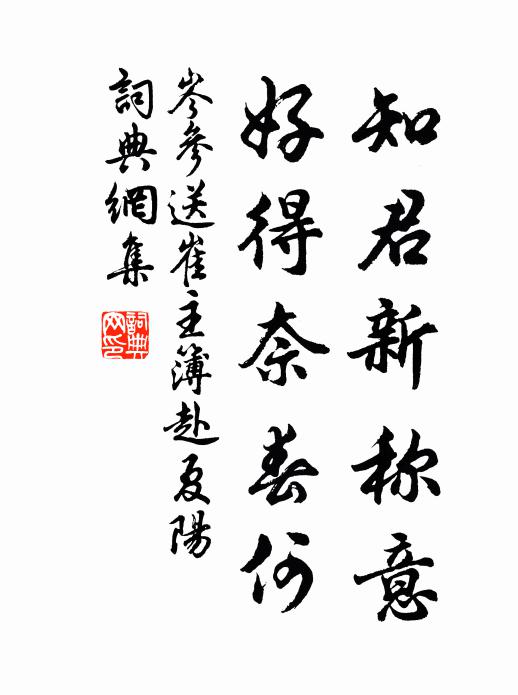 知君新称意
好得奈春何
岑參送崔主簿赴夏陽
詞典網集
詞典网印